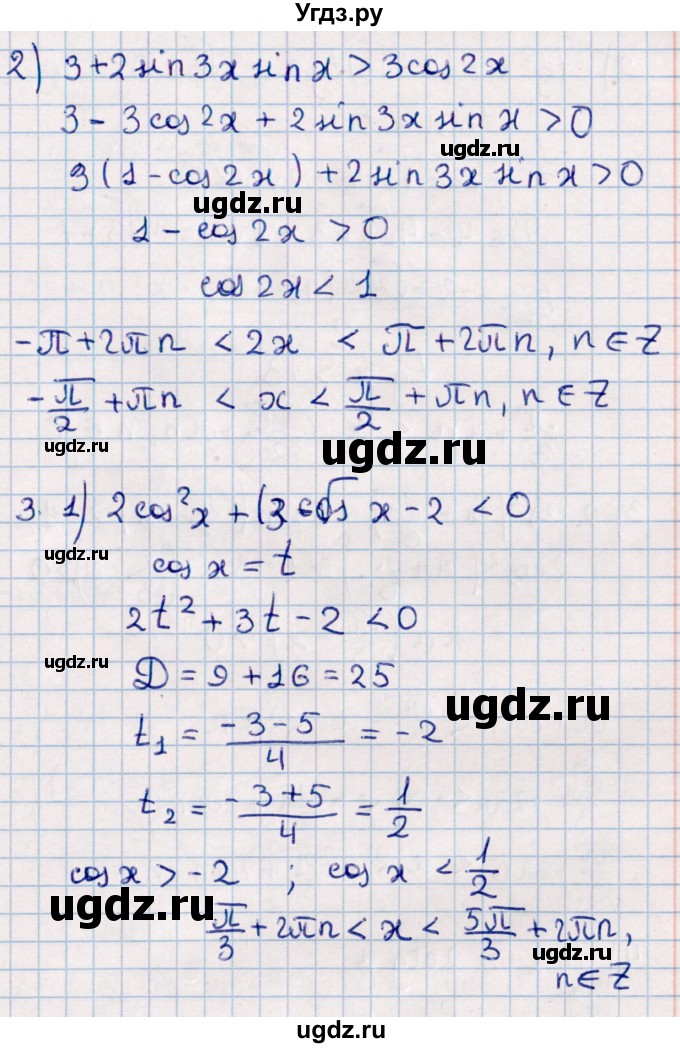 Угдз.ру
2) 3+2sin3x sinx>3cos2x
3-3cos2x+2sin3x sinx>0
ugdz.ru
3(1-cos2x)+2sin3x sinx>0
ugdz.ru
1-cos2x>0
cos2x<1
-π+2πn <2x < π+2πn, n∈Z
-π/2+πn < x < π/2+πn, n∈Z
ugdz.ru
ugdz.ru
3. 1) 2cos²x+(3cosx-2<0
ugdz.ru
cosx=t
2t²+3t-2<0
ugdz.ru
D=9+16=25
ugdz.ru
t₁=(-3-5)/4=-2
t₂=(-3+5)/4=1/2
cosx>-2 ; cosx<1/2
ugdz.ru
π/3+2πn<x<5π/3+2πn,
ugdz.ru
n∈Z
ugdz.ru